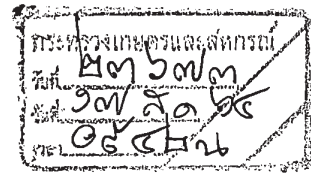 กระทรวงเกษตรและสหกรณ์
รับที่ ๒๓๖๗๓
วันที่ ๑๗ สิค ๖๔
เวลา ๑๕ ๔๒ น